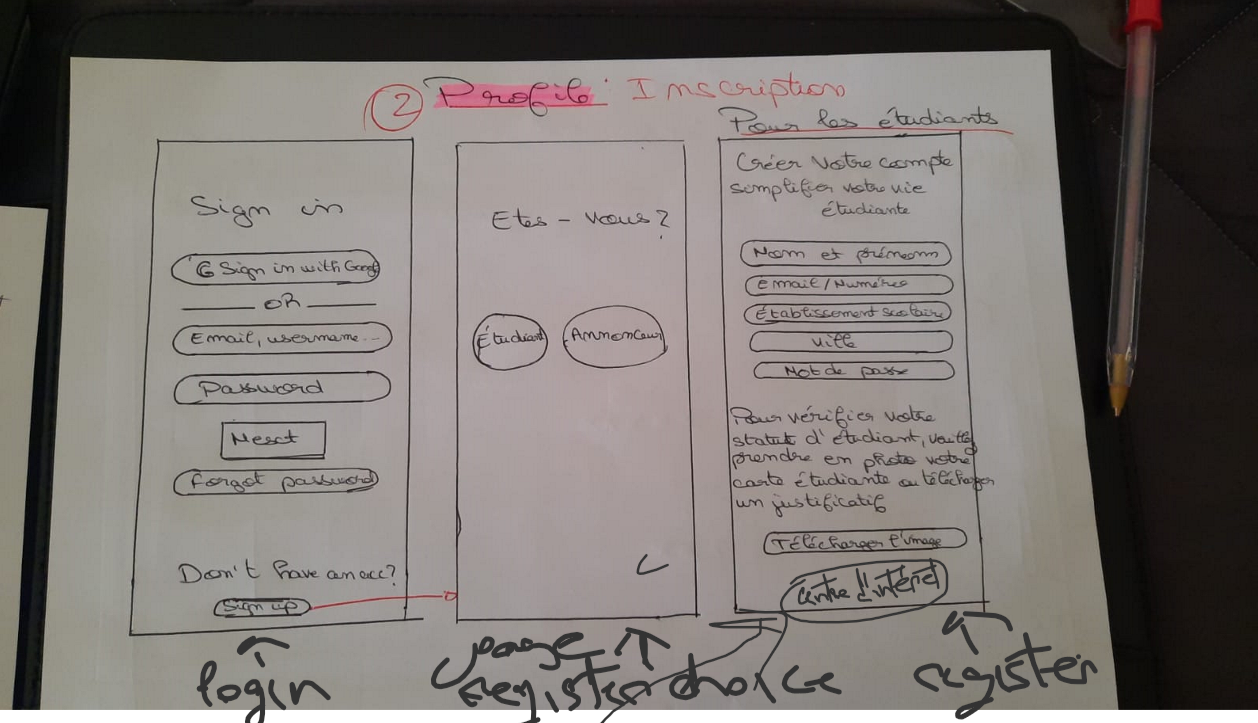 ② Profil : Inscription
Sign in
G Sign in with Google
OR
Email, username...
Password
Next
Forgot password
Don't have an acc?
Sign up
login
Etes - vous ?
Étudiant
Annonceur
page
register choice
Pour les étudiants
Créer votre compte
simplifier votre vie
étudiante
Nom et prénom
Email/Numéro
Établissement scolaire
Ville
Mot de passe
Pour vérifier votre
statut d'étudiant, veuillez
prendre en photo votre
carte étudiante ou télécharger
un justificatif
Télécharger l'image
centre d'intéret
register